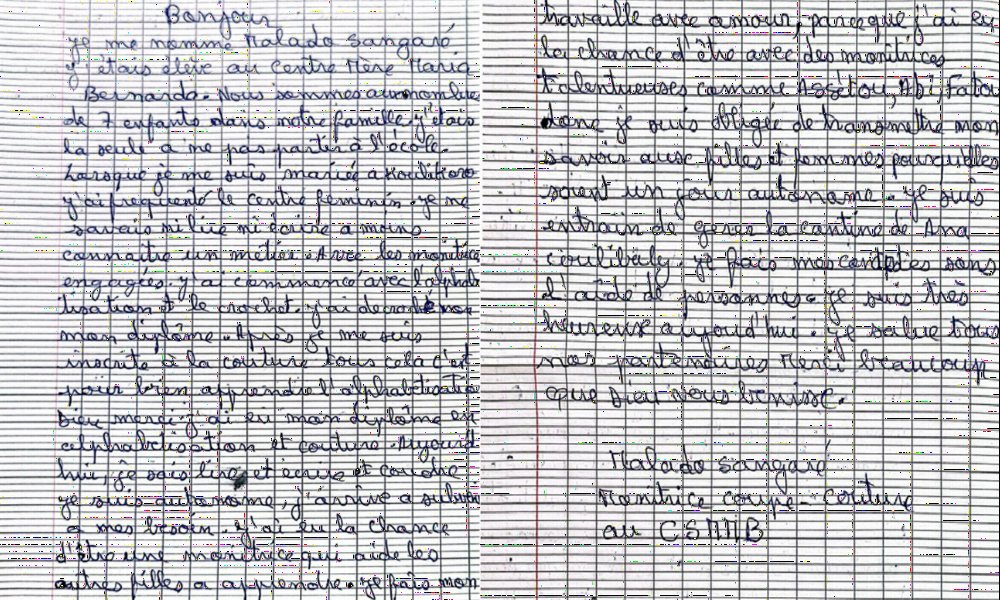 Bonjour
je me nomme Malado Sangaré.
J'étais élève au Centre Mère Maria
Bernarda. Nous sommes au nombre
de 7 enfants dans notre famille, j'étais
la seule à ne pas partir à l'école.
Lorsque je me suis mariée à
j'ai frequenté le centre feminin. je ne
savais ni lire ni écrire à moins
connaitre un métier. Avec les monitrices
engagées. j'ai commencé avec l'alphabe
tisation et le crochet. j'ai decroché
mon diplôme. Après je me suis
inscrite à la couture tous cela c'est
pour bien apprendre l'alphabétisation
Dieu merci j'ai eu mon diplôme en
alphabetisation et couture. Aujourd
hui, je sais lire et écrire et coudre
je suis autonome, j'arrive a subvenir
a mes besoin. j'ai eu la chance
d'être une monitrice qui aide les
autres filles a apprendre. je fais mon
travaille avec amour, parceque j'ai eu
la chance d'être avec des monitrices
talentueuses comme Assétou, Abi, Fatou
donc je suis obligée de transmettre mon
savoir aux filles et femmes pourqu'elles
soient un jour autonome. je suis
entrain de gerer la cantine de Ana
coulibaly. je fais mes comptes sans
l'aide de personnes. je suis très
heureuse aujourd'hui. je salue tous
nos partenaires Merci beaucoup
que Dieu vous benisse.
Malado Sangaré
Monitrice coupe-couture
au CSMMB